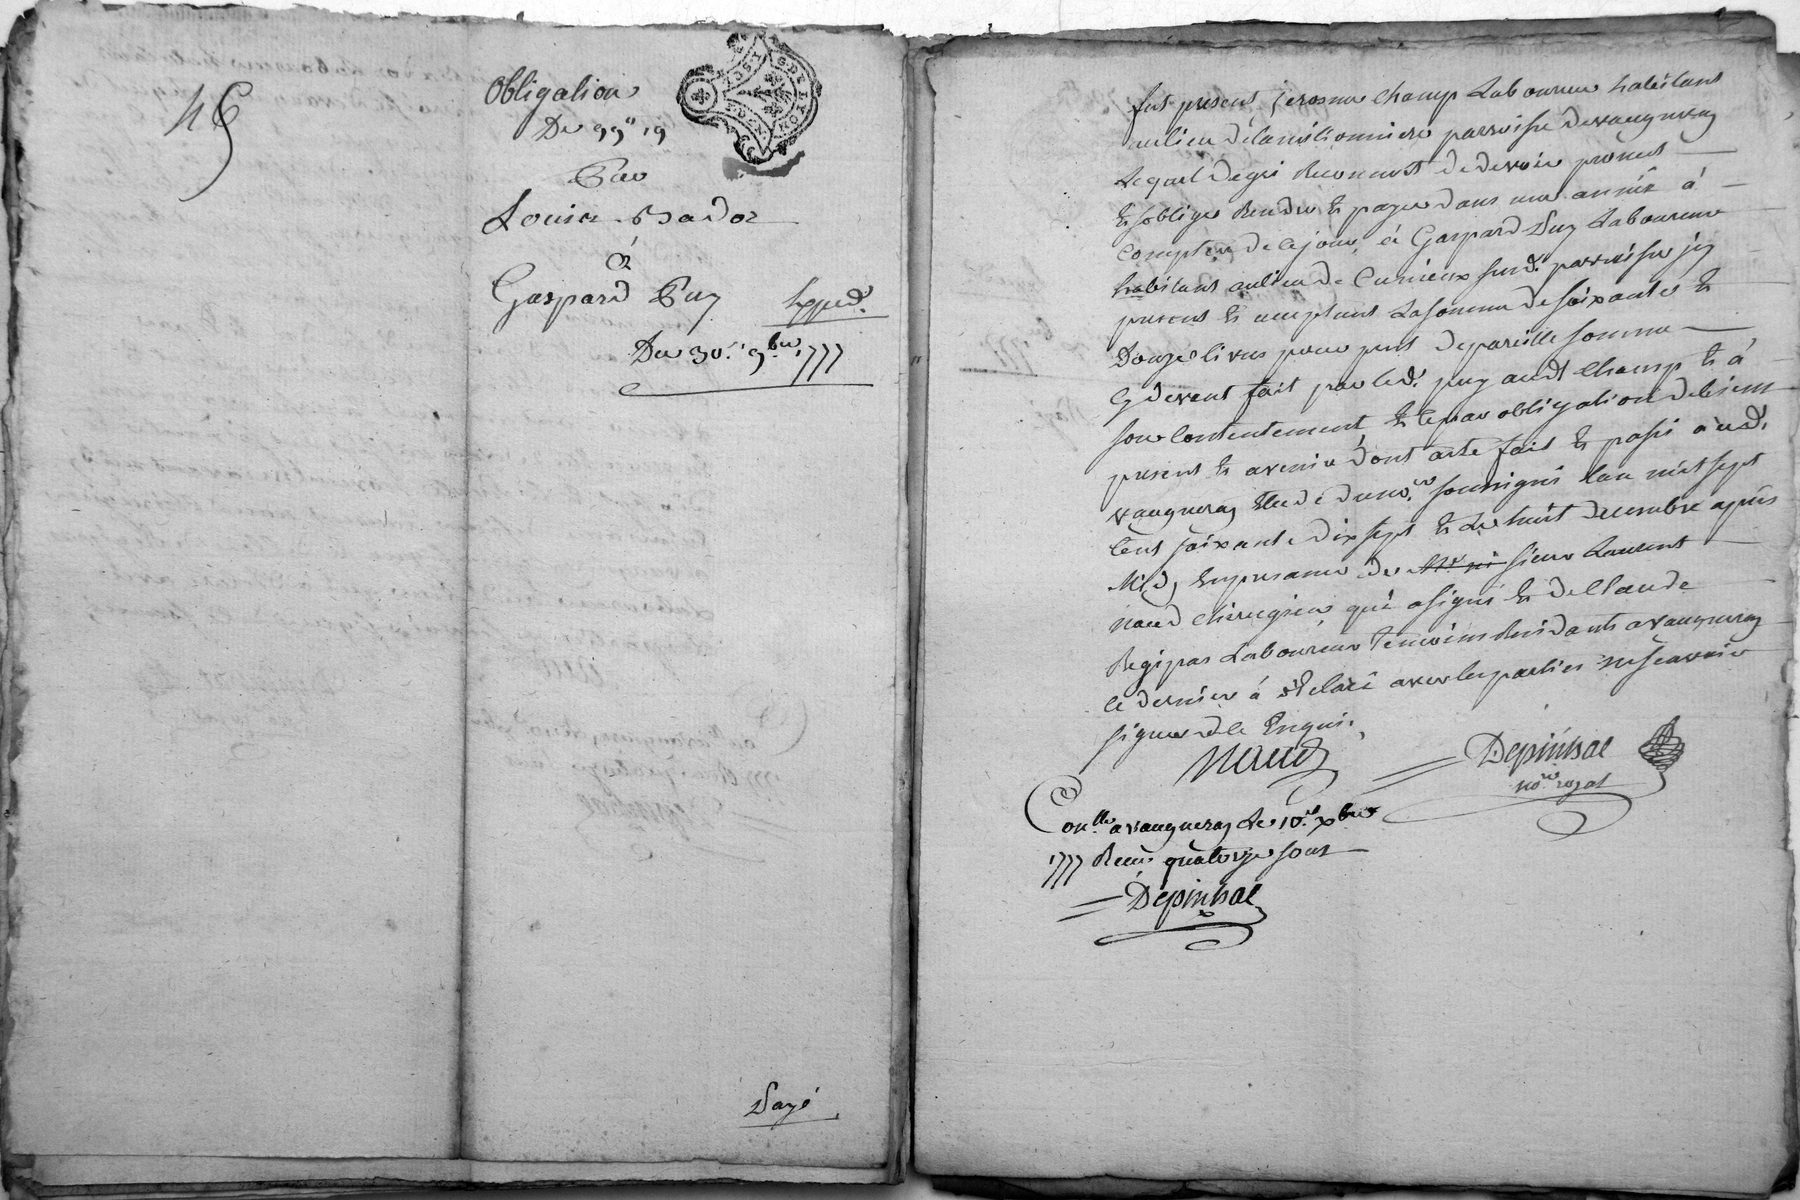 Obligation
De 99ᴸᴸ 19
Par
Louis Bador
à
Gaspard Puy
Exped.
Du 30. 9bre 1777
Payé
fut present jerosme Champ Laboureur habitant
au lieu de la milionniere parroisse de vaugneray
Lequel de gré Reconnoit de devoir promet
Et soblige Rendre Et payer dans une année à
Compter de ce jour, à Gaspard Puy Laboureur
habitant au lieu de Cumieux susd. parroisse jcy
present Et acceptant La somme de soixante Et
Douze livres pour pret de pareille somme
Cy devant fait par led. puy audt Champ Et à
son Contentement Et Ce par obligation de biens
present Et avenir dont acte fait Et passé aud.
vaugneray Etude du nore. soussigné Lan mil sept
Cent soixante dix sept Et Le huit decembre apres
Midy, En presance de sieur Laurent
naud Chirurgien qui a signé Et de Claude
Regipas Laboureur temoins Residants a vaugneray
Ce dernier à declaré avec les parties ne sçavoir
signer de ce Enquis.
Naud
Depinhac
nore. royal
Conlle a vaugneray Le 10. xbre
1777 Reçu quatorze sous
Depinhac